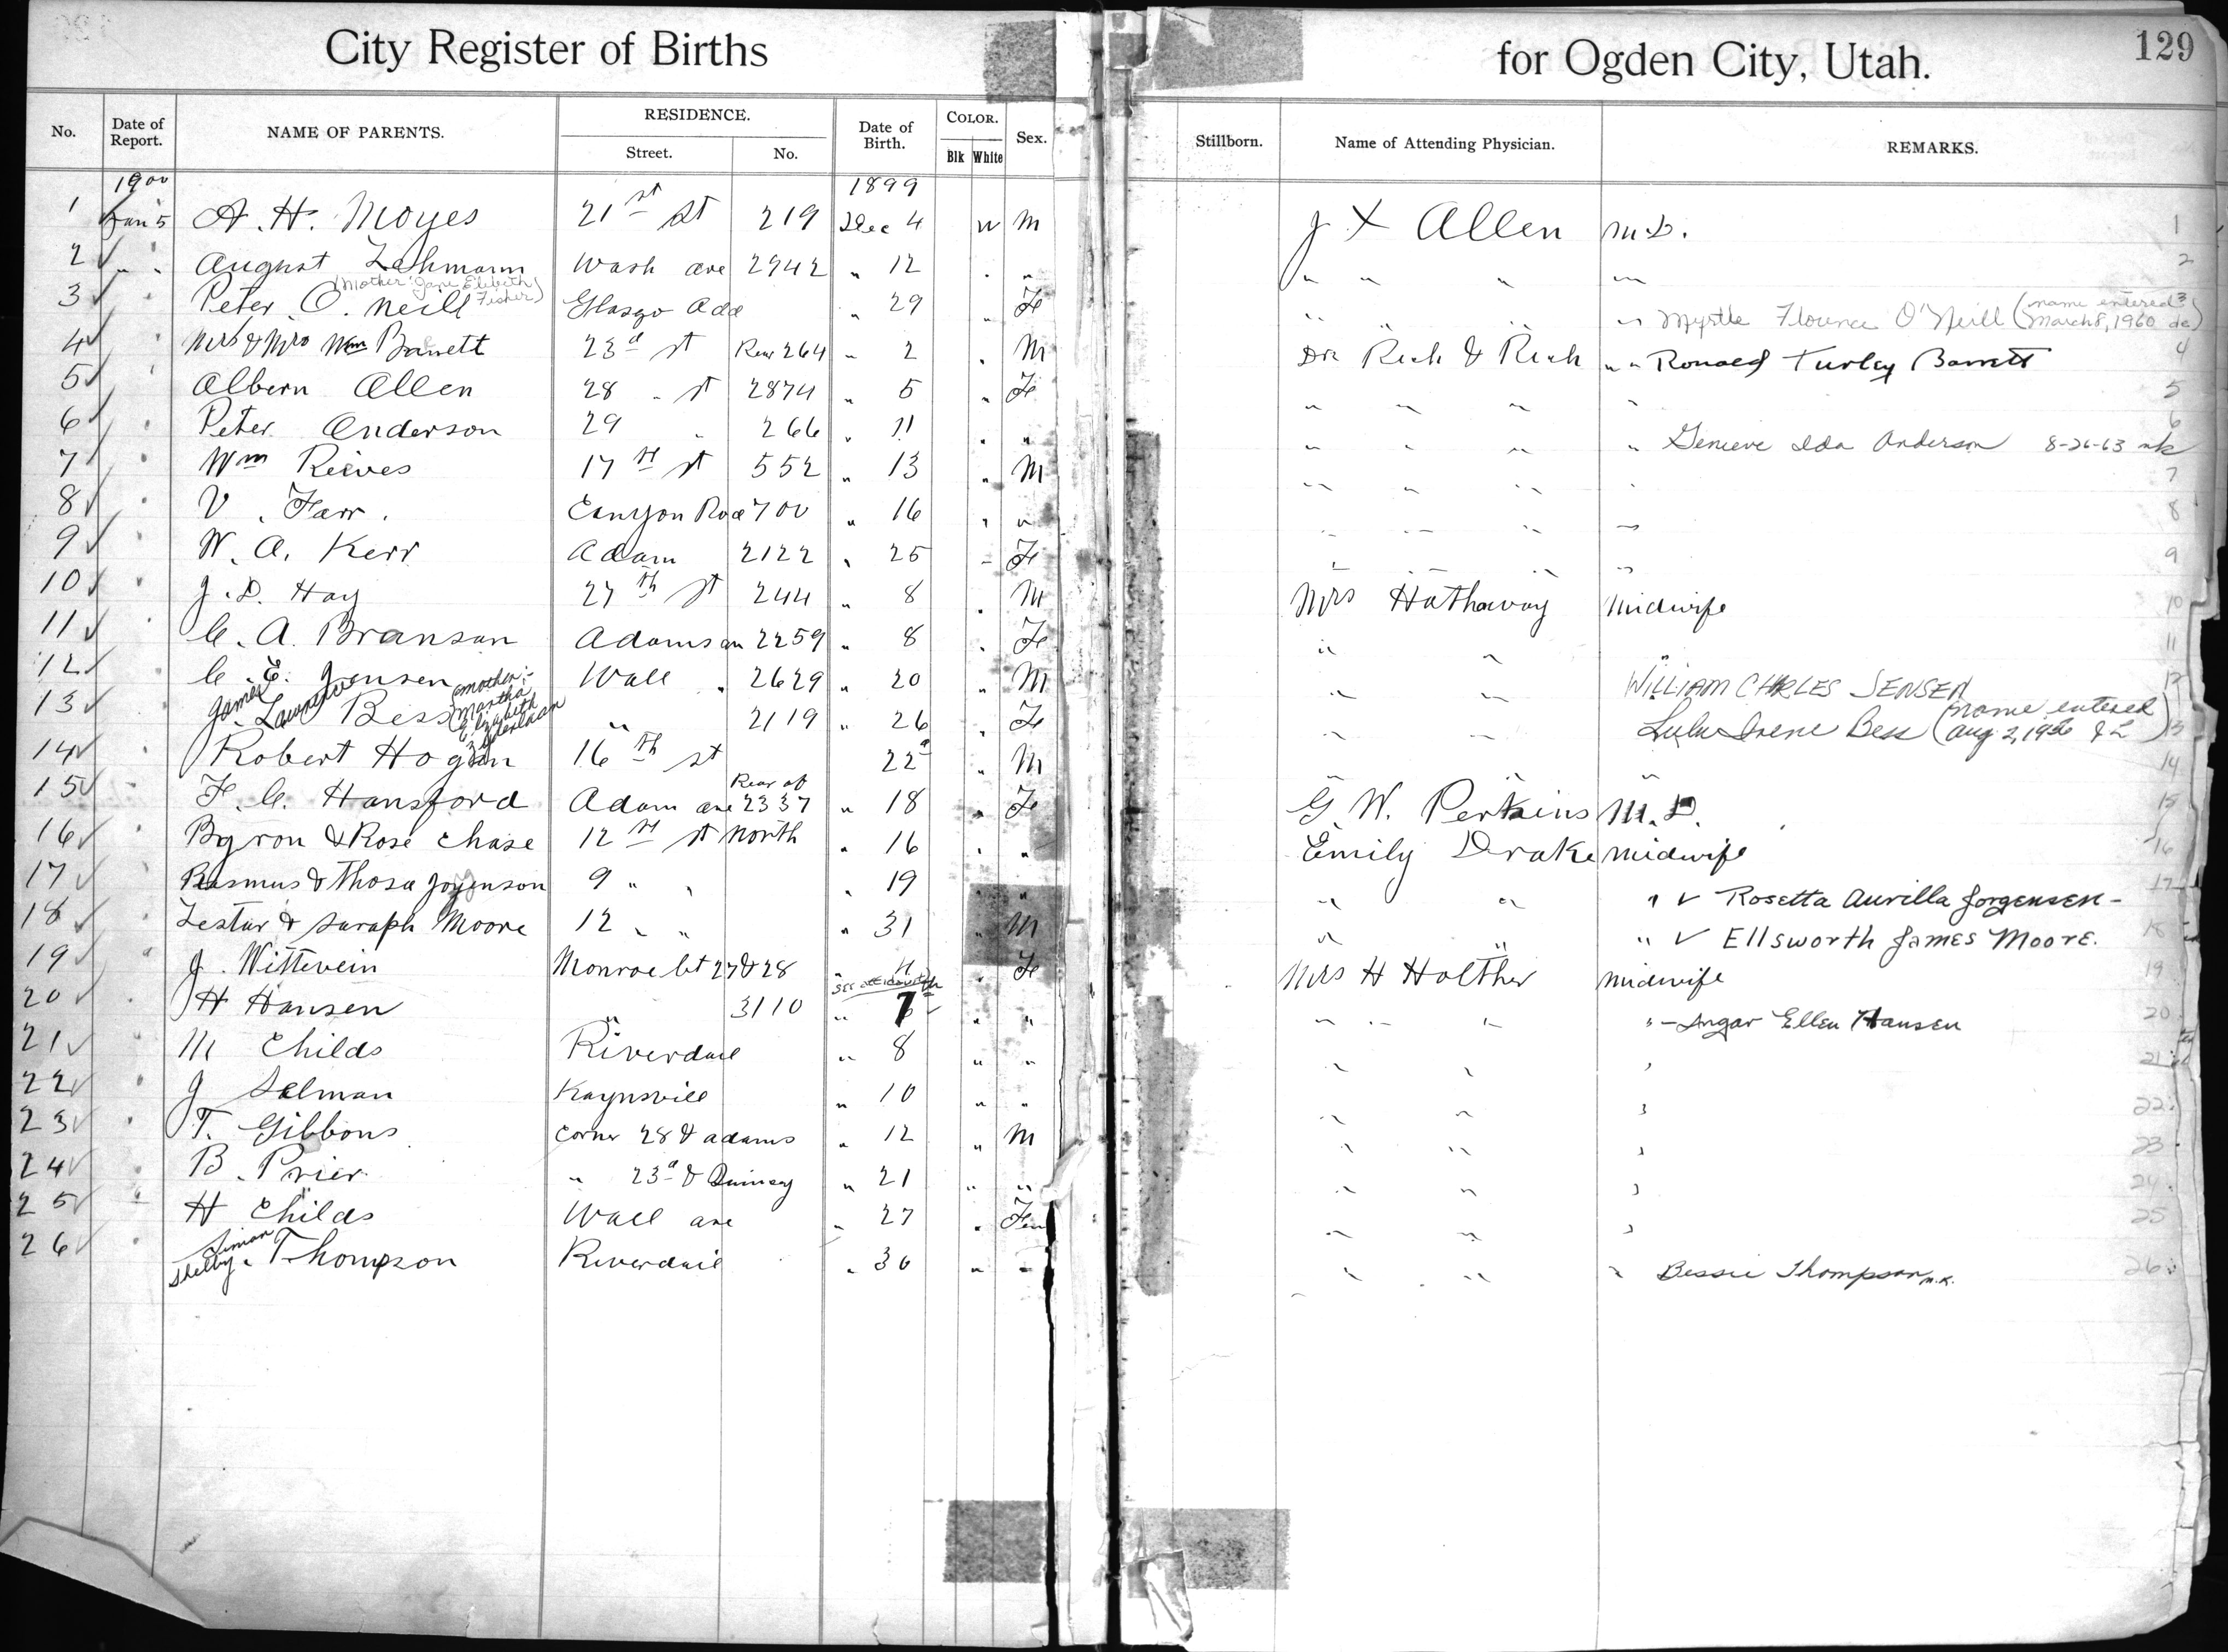 City Register of Births for Ogden City, Utah. 129
No. Date of Report. NAME OF PARENTS. RESIDENCE. Street. No. Date of Birth. COLOR. Blk White Sex. Stillborn. Name of Attending Physician. REMARKS.
1900 1899
1 Jan 5 A. H. Moyes 21st St 219 Dec 4 W M J X Allen M.D. 1
2 " " August Lehmann Wash ave 2942 " 12 " " " " " " 2
(Mother: Jane Elibeth Fisher)
3 " Peter O. Neill Glasgo Add " 29 " Fe " " " Myrtle Florence O'Neill (name entered March 8, 1960 de) 3
4 " Mr & Mrs Wm Barrett 23d st Rear 264 " 2 " M Drs Rich & Rich " " Ronald Turley Barrett 4
5 " Albern Allen 28 " st 2874 " 5 " Fe " " " " 5
6 " Peter Anderson 29 " 266 " 11 " " " " " " Genieve Ida Anderson 8-26-63 mk 6
7 " Wm Reives 17th st 552 " 13 " M " " " " 7
8 " V. Farr. Canyon Road 700 " 16 " " " " " " 8
9 " W. A. Kerr Adam 2122 " 25 " Fe " " " " 9
10 " J. D. Hay 27th St 244 " 8 " M Mrs Hathaway Midwife 10
11 " C. A. Branson Adams av 2259 " 8 " Fe " " " 11
12 C. E. Jensen Wall " 2629 " 20 " M " " WILLIAM CHARLES JENSEN 12
13 " James Lawrence Bess (mother:- Martha Elizabeth " 2119 " 26 " Fe " " Lulu Irene Bess (name entered Aug 2, 1956 & L) 13
14 " Robert Hogan 16th st 22d " M " " " 14
15 " F. C. Hansford Adam ave Rear of 2337 " 18 " Fe G. W. Perkins M.D. 15
16 " Byron & Rose Chase 12th st North " 16 " " Emily Drake Midwife 16
17 " Rasmus & Thosa Jorgenson 9 " " " 19 " " " " " v Rosetta Aurilla Jorgensen - 17
18 " Lestar & Saraph Moore 12 " " " 31 " M " " " v Ellsworth James Moore. 18
19 " J. Wittevein Monroe bt 27 & 28 " 4 " Fe Mrs H Holther Midwife 19
See affidavit
20 " H Hansen " 3110 " 7 " " " " " " - Ingar Ellen Hansen 20
21 " M Childs Riverdail " 8 " " " " " 21
22 " J Salman Kaynsvill " 10 " " " " " 22
23 " T. Gibbons Corner 28 & adams " 12 " M " " " 23
24 " B. Prier " 23d & Quincy " 21 " " " " " 24
25 " H Childs Wall ave " 27 " Fem " " " 25
26 " Simon Shelby. Thompson Riverdail " 30 " " " " " Bessie Thompson m.k. 26